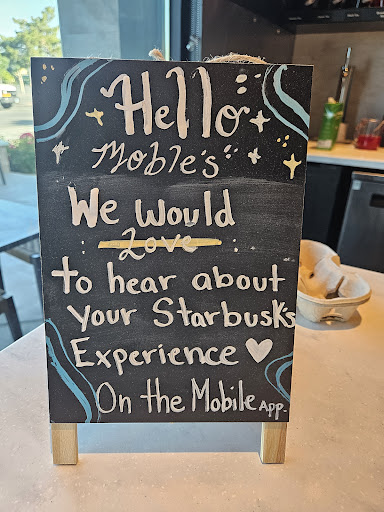 Hello
Moble's
We would
Love
to hear about
your Starbusk's
Experience
On the Mobile App.